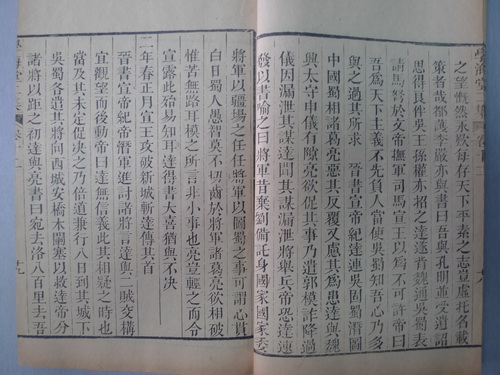 之望慨然永歎每存天下平素之志豈虛托名載
策者哉都護李嚴亦與書曰吾與孔明並受遺詔
思得良伴吳王孫權亦招之達遂背魏通吳蜀表
請馬於文帝撫軍司馬宣王以爲不可許帝曰
吾爲天下主義不先負人當使吳蜀知吾心乃多
與之過其所求 晉書宣帝紀達連吳固蜀潛圖
中國蜀相諸葛亮惡其反覆又慮其爲患達與魏
興太守申儀有隙亮欲促其事乃遣郭模詐降過
儀因漏泄其謀達聞其謀漏泄將舉兵帝恐達速
發以書諭之曰將軍昔棄劉備託身國家國家委
將軍以疆場之任任將軍以圖蜀之事可謂心貫
白日蜀人愚智莫不切齒於將軍諸葛亮欲相破
惟苦無路耳模之所言非小事也亮豈輕之而令
宣露此殆易知耳達得書大喜猶與不決
二年春正月宣王攻破新城斬達傳其首
晉書宣帝紀帝潛軍進討諸將言達與二賊交構
宜觀望而後動帝曰達無信義此其相疑之時也
當及其未定促決之乃倍道兼行八日到其城下
吳蜀各遣其將向西城安橋木闌塞以救達帝分
諸將以距之初達與亮書曰宛去洛八百里去吾